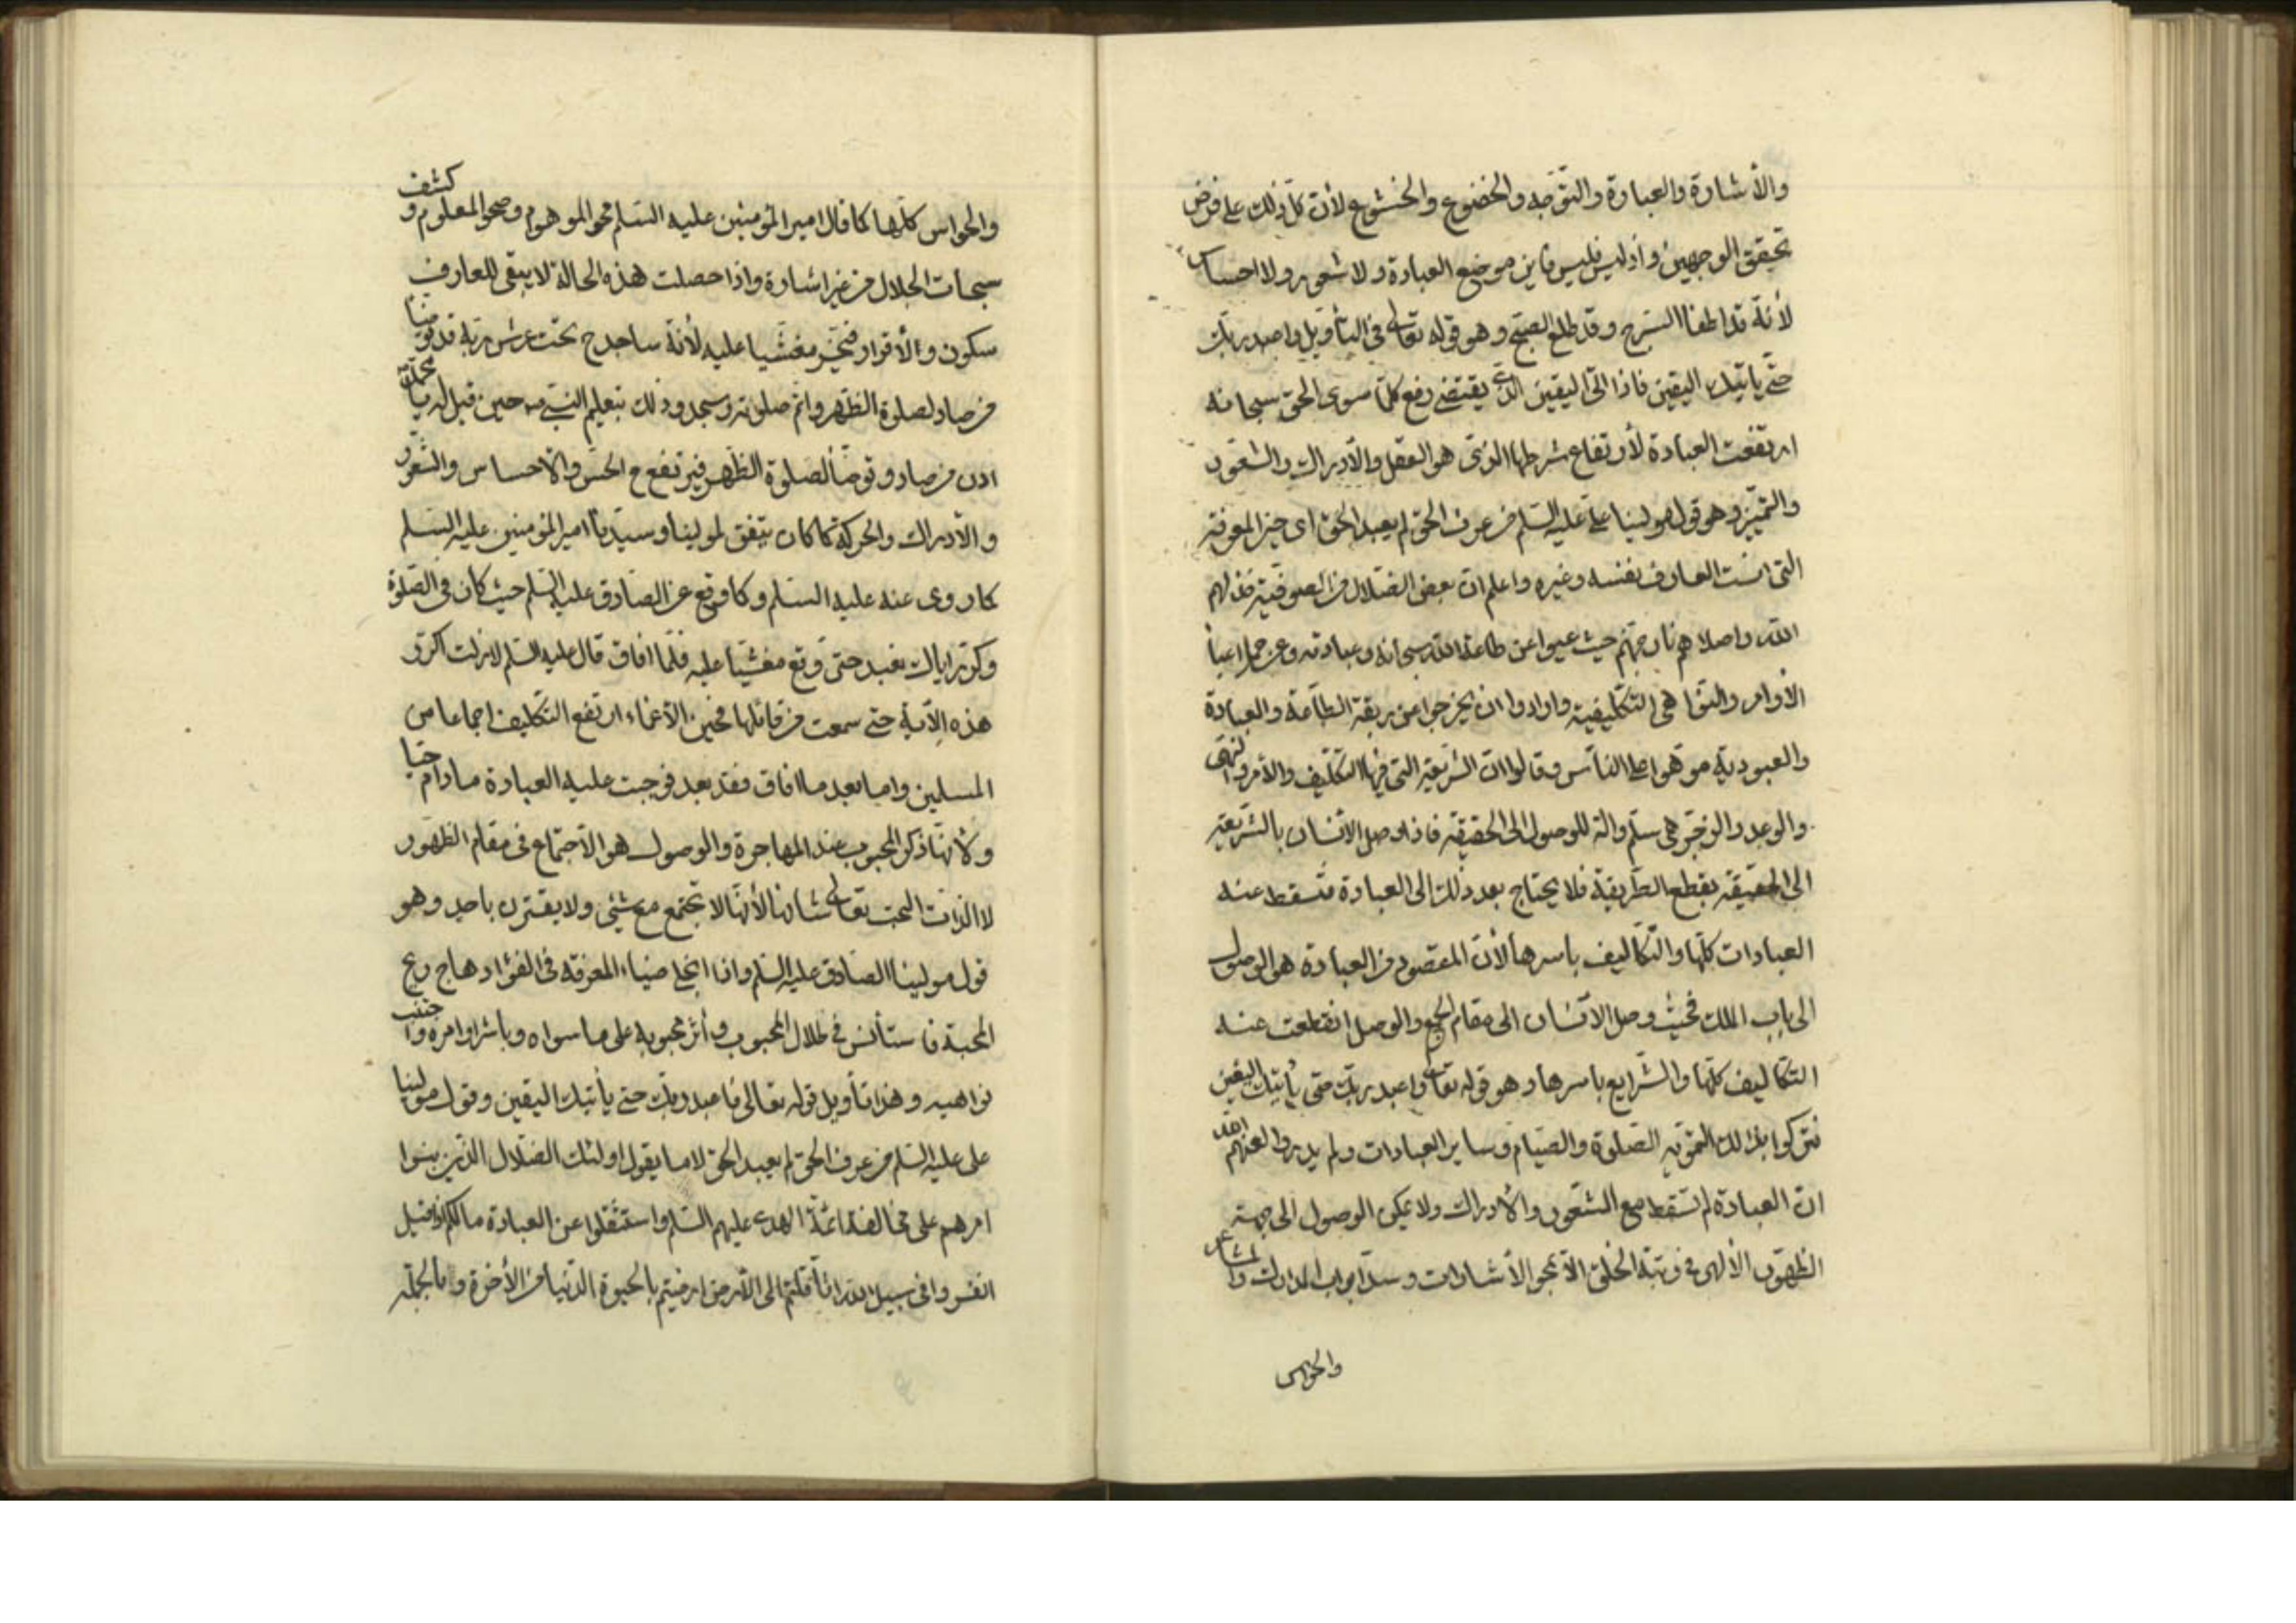 والأشارة والعبارة والتوّجه والخضوع والخشوع لأنّ كلّ ذلك على فرض
تحقيق الوجهين وأذ ليس فليس فاين موضع العبادة ولا شعور ولا احساس
لأنّه قد اطفأ السّرج وقد طلع الصبح وهو قوله تعالى في التأويل واعبد ربّك
حتّى يأتيك اليقين فاذا اتى اليقين الّذى يقتضى رفع كلّما سوى الحق سبحانه
ارتفعت العبادة لأرتفاع شرطها الّذى هو العقل والأدراك والشعور
والتّميّز وهو قول مولينا علىّ عليه السّلم من عرف الحق لم يعبد الحق اى حين المعرفة
التى انست العارف نفسه وغيره واعلم انّ بعض الضّلال من الصوفيّة خذلهم
اللّه واصلاهم نار جهنّم حيث عيوا عن طاعة اللّه سبحانه وعبادته وعن حمل اعبأ
الأوامر والنّواهى التكليفية وارادوا ان يخرجوا عن ربقة الطّاعة والعبادة
والعبوديّة موّهوا على النّاس وقالوا انّ الشّريعة التى فيها التكليف والأمر والنهى
والوعد والزجر هى سلّم والة للوصول الى الحقيقة فاذا وصل الانسان بالشّريعة
الى الحقيقة بقطع الطّريقة فلا يحتاج بعد ذلك الى العبادة فتسقط عنه
العبادات كلّها والتّكاليف باسرها لأنّ المقصود من العبادة هو الوصول
الى باب الملك فحيث وصل الانسان الى مقام الجمع والوصل انقطعت عنه
التّكاليف كلّها والشّرايع باسرها وهو قوله تعالى واعبد ربّك حتى يأتيك اليقين
فتركوا بذلك التمويه الصّلوة والصّيام وساير العبادات ولم يدروا لعنهم اللّه
انّ العبادة لم تسقط مع الشّعور والأدراك ولا يمكن الوصول الى جهة
الظهور الألهى فى رتبة الخلق الّا بمحو الأشارات وسدّ ابواب المدارك والمشاعر
والحواس
والحواس كلّها كما قال امير المؤمنين عليه السّلم محو الموهوم وصحو المعلوم وكشف
سبحات الجلال من غير اشارة واذا حصلت هذه الحالة لا يبقى للعارف
سكون والأقرار فيخرّ مغشّيا عليه لأنّه ساجد ح تحت عرش ربّه قد توضّأ
من صاد لصلوة الظّهر واتمّ صلوته وسجد وذلك بتعليم النبى ص حين قيل له يا محمّد
ادن من صاد وتوضّأ لصلوة الظّهر فيرتفع ح الحسّ والأحساس والشّعور
والأدراك والحركة كما كان يتّفق لمولينا وسيّدنا امير المؤمنين عليه السّلم
كما روى عنه عليه السّلم وكما وقع عن الصّادق عليه السّلم حيث كان فى الصّلوة
وكرّر ايّاك نعبد حتى وقع مغشيّا عليه فلمّا افاق قال عليه السّلم لازلت اكرّر
هذه الآية حتى سمعت من قائلها فحين الأغماء ارتفع التّكليف اجماعا من
المسلمين واما بعد ما افاق فقد بعد فوجبت عليه العبادة مادام حيّا
ولأنّها ذكر المحبوب عند المهاجرة والوصول هو الأجتماع فى مقام الظهور
لا الذات البحت تعالى شأنها لأنّها لا تجتمع مع شئ ولا يقترن باحد وهو
قول مولينا الصّادق عليه السّلم واذا انجلى ضياء المعرفة فى الفؤاد هاج ريح
المحبة فاستأنس فى ظلال المحبوب وأثر محبوبه على ما سواه وباشر اوامره واجتنب
نواهيه وهذا تأويل قوله تعالى فاعبد ربّك حتى يأتيك اليقين وقول مولينا
على عليه السّلم من عرف الحق لم يعبد الحق لا ما يقول اولئك الضّلال الّذين بنوا
امرهم على مخالفة ائمّة الهدى عليهم السّلم واستثقلوا عن العبادة مالكم اذا قيل
انفروا فى سبيل اللّه اثّاقلتم الى الأرض ارضيتم بالحيوة الدّنيا من الأخرة وبالجملة